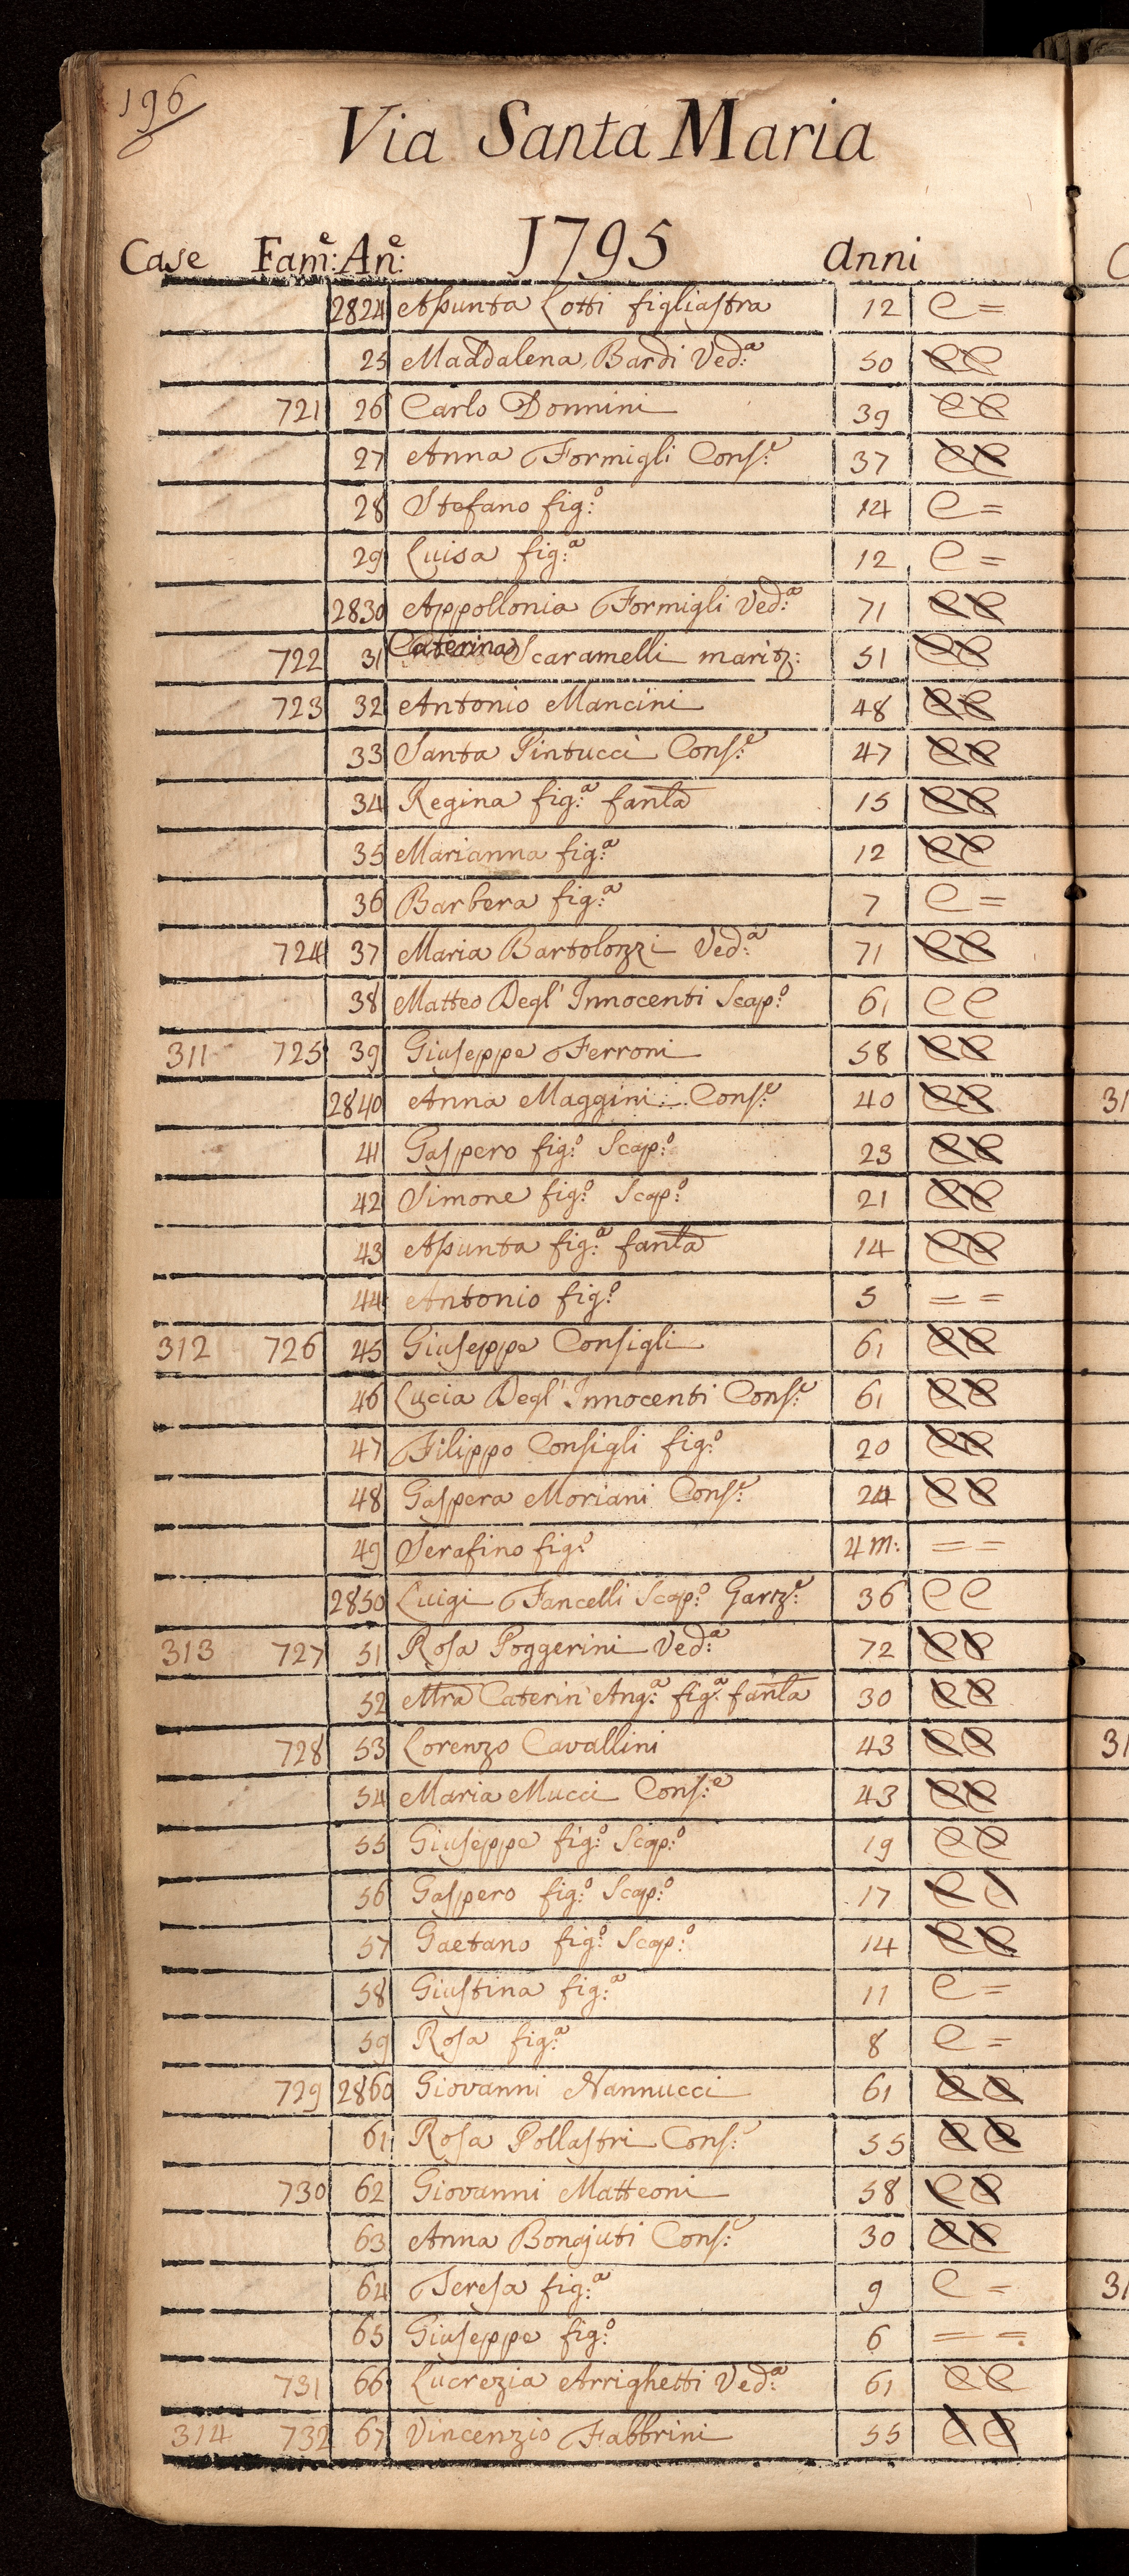 196
Via Santa Maria
Case Fam:e An:e 1795 Anni
2824 Assunta Lotti figliastra 12 C =
25 Maddalena Bardi Ved:a 50 C C
721 26 Carlo Donnini 39 C C
27 Anna Formigli Cons:e 37 C C
28 Stefano fig:o 14 C =
29 Luisa fig:a 12 C =
2830 Appollonia Formigli Ved:a 71 C C
722 31 Caterina Scaramelli maritz: 51 C C
723 32 Antonio Mancini 48 C C
33 Santa Pintucci Cons:e 47 C C
34 Regina fig:a fanla 15 C C
35 Marianna fig:a 12 C C
36 Barbera fig:a 7 C =
724 37 Maria Bartolozzi Ved:a 71 C C
38 Matteo Degl' Innocenti Scap:o 61 C C
311 725 39 Giuseppe Ferroni 58 C C
2840 Anna Maggini Cons:e 40 C C
41 Gaspero fig:o Scap:o 23 C C
42 Simone fig:o Scap:o 21 C C
43 Assunta fig:a fanla 14 C C
44 Antonio fig:o 5 = =
312 726 45 Giuseppe Consigli 61 C C
46 Lucia Degl' Innocenti Cons:e 61 C C
47 Filippo Consigli fig:o 20 C C
48 Gaspera Moriani Cons:e 24 C C
49 Serafino fig:o 4 m: = =
2850 Luigi Fancelli Scap:o Garz:e 36 C C
313 727 51 Rosa Poggerini Ved:a 72 C C
52 Mra Caterin' Ang:a fig:a fanla 30 C C
728 53 Lorenzo Cavallini 43 C C
54 Maria Mucci Cons:e 43 C C
55 Giuseppe fig:o Scap:o 19 C C
56 Gaspero fig:o Scap:o 17 C C
57 Gaetano fig:o Scap:o 14 C C
58 Giustina fig:a 11 C =
59 Rosa fig:a 8 C =
729 2860 Giovanni Nannucci 61 C C
61 Rosa Pollastri Cons:e 55 C C
730 62 Giovanni Matteoni 58 C C
63 Anna Bonajuti Cons:e 30 C C
64 Teresa fig:a 9 C =
65 Giuseppe fig:o 6 = =
731 66 Lucrezia Arrighetti Ved:a 61 C C
314 732 67 Vincenzio Fabbrini 55 C C